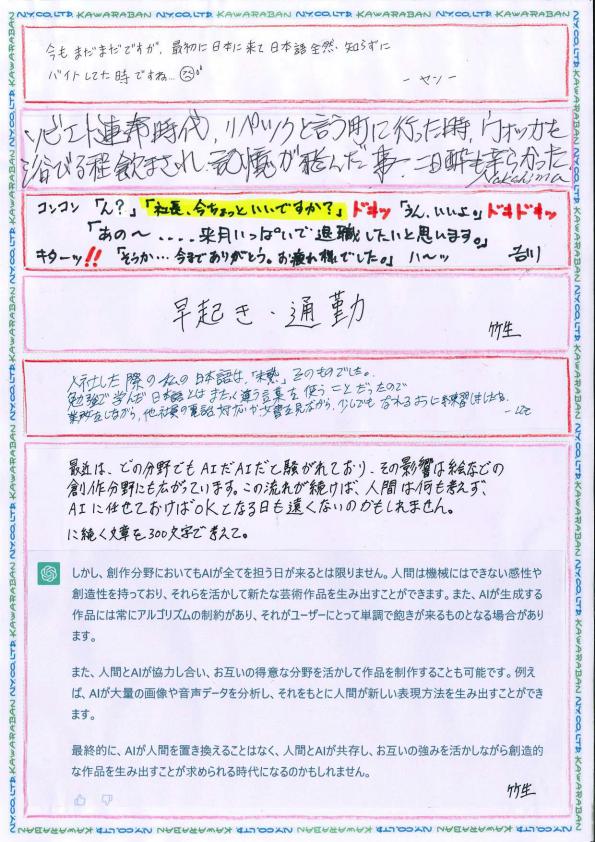 N.Y.CO.,LTD. KAWARABAN
今もまだまだですが、最初に日本に来て日本語全然知らずに
バイトしてた時ですね…
ーヤンー
ソビエト連邦時代、リペックと言う町に行った時、ウォッカを
浴びる程飲まされ、記憶が飛んだ事。二日酔も辛らかった。
Nakashima
コンコン「ん?」「社長、今ちょっといいですか?」ドキッ「うん、いいよ。」ドキドキッ
「あの〜....来月いっぱいで退職したいと思います。」
キターッ!!「そうか…今までありがとう。お疲れ様でした。」ハ〜ッ 吉川
早起き・通勤
竹生
入社した際の私の日本語は、「未熟」そのものでした。
勉強で学んだ日本語とはまたく違う言葉を使うことだったので
業務をしながら、他社員の電話対応や文書を見ながら、少しでもなれるように練習しました。
最近は、どの分野でもAIだAIだと騒がれており、その影響は絵などの
創作分野にも広がっています。この流れが続けば、人間は何も考えず、
AIに任せておけばOKとなる日も遠くないのかもしれません。
に続く文章を300文字で考えて。
しかし、創作分野においてもAIが全てを担う日が来るとは限りません。人間は機械にはできない感性や
創造性を持っており、それらを活かして新たな芸術作品を生み出すことができます。また、AIが生成する
作品には常にアルゴリズムの制約があり、それがユーザーにとって単調で飽きが来るものとなる場合があり
ます。
また、人間とAIが協力し合い、お互いの得意な分野を活かして作品を制作することも可能です。例え
ば、AIが大量の画像や音声データを分析し、それをもとに人間が新しい表現方法を生み出すことができ
ます。
最終的に、AIが人間を置き換えることはなく、人間とAIが共存し、お互いの強みを活かしながら創造的
な作品を生み出すことが求められる時代になるのかもしれません。
竹生